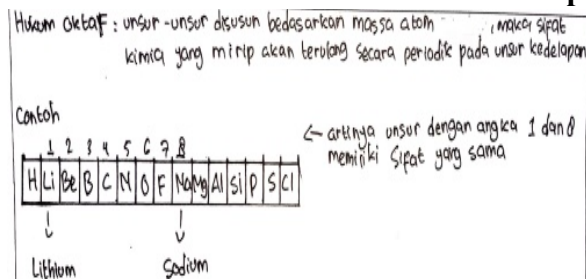 Hukum Oktaf : unsur-unsur disusun bedasarkan massa atom , maka sifat
kimia yang mirip akan terulang secara periodik pada unsur kedelapan
Contoh
1 2 3 4 5 6 7 8
H Li Be B C N O F Na Mg Al Si P S Cl
← artinya unsur dengan angka 1 dan 8
memiliki sifat yang sama
↓ ↓
Lithium Sodium